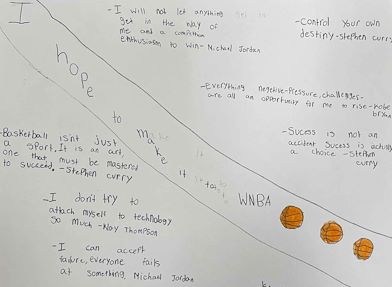 I
hope
to
make
it
to
WNBA
-I will not let anything
get in the way of
me and a competitive
enthusiasm to win- Michael Jordan
-Control your own
destiny-Stephen curry
-Everything negetive-Pressure, challenges-
are all an opportunity for me to rise-kobe
-Sucess is not an
accident Sucess is actually
a choice -Stephen
curry
-Basketball isn't just
a sport. It is an art,
one that must be mastered
to succeed. -Stephen curry
-I don't try to
attach myself to technology
so much -Klay Thompson
-I can accept
failure, everyone fails
at something. Michael Jordan